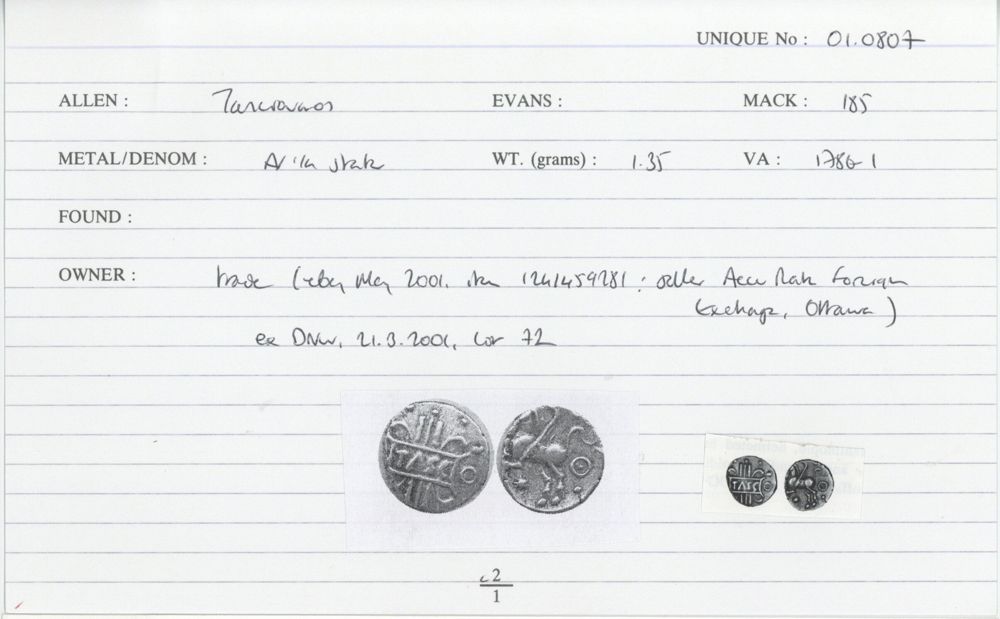 UNIQUE No : 01.0807
ALLEN : Tasciovanos EVANS : MACK : 185
METAL/DENOM : AV 1/4 stater WT. (grams) : 1.35 VA : 1786-1
FOUND :
OWNER : trade (eBay May 2001, item 1241459281 : seller Accu Rate Foreign
Exchange, Ottawa)
ex DNW, 21.3.2001, lot 72
TASC
TASC
2
1